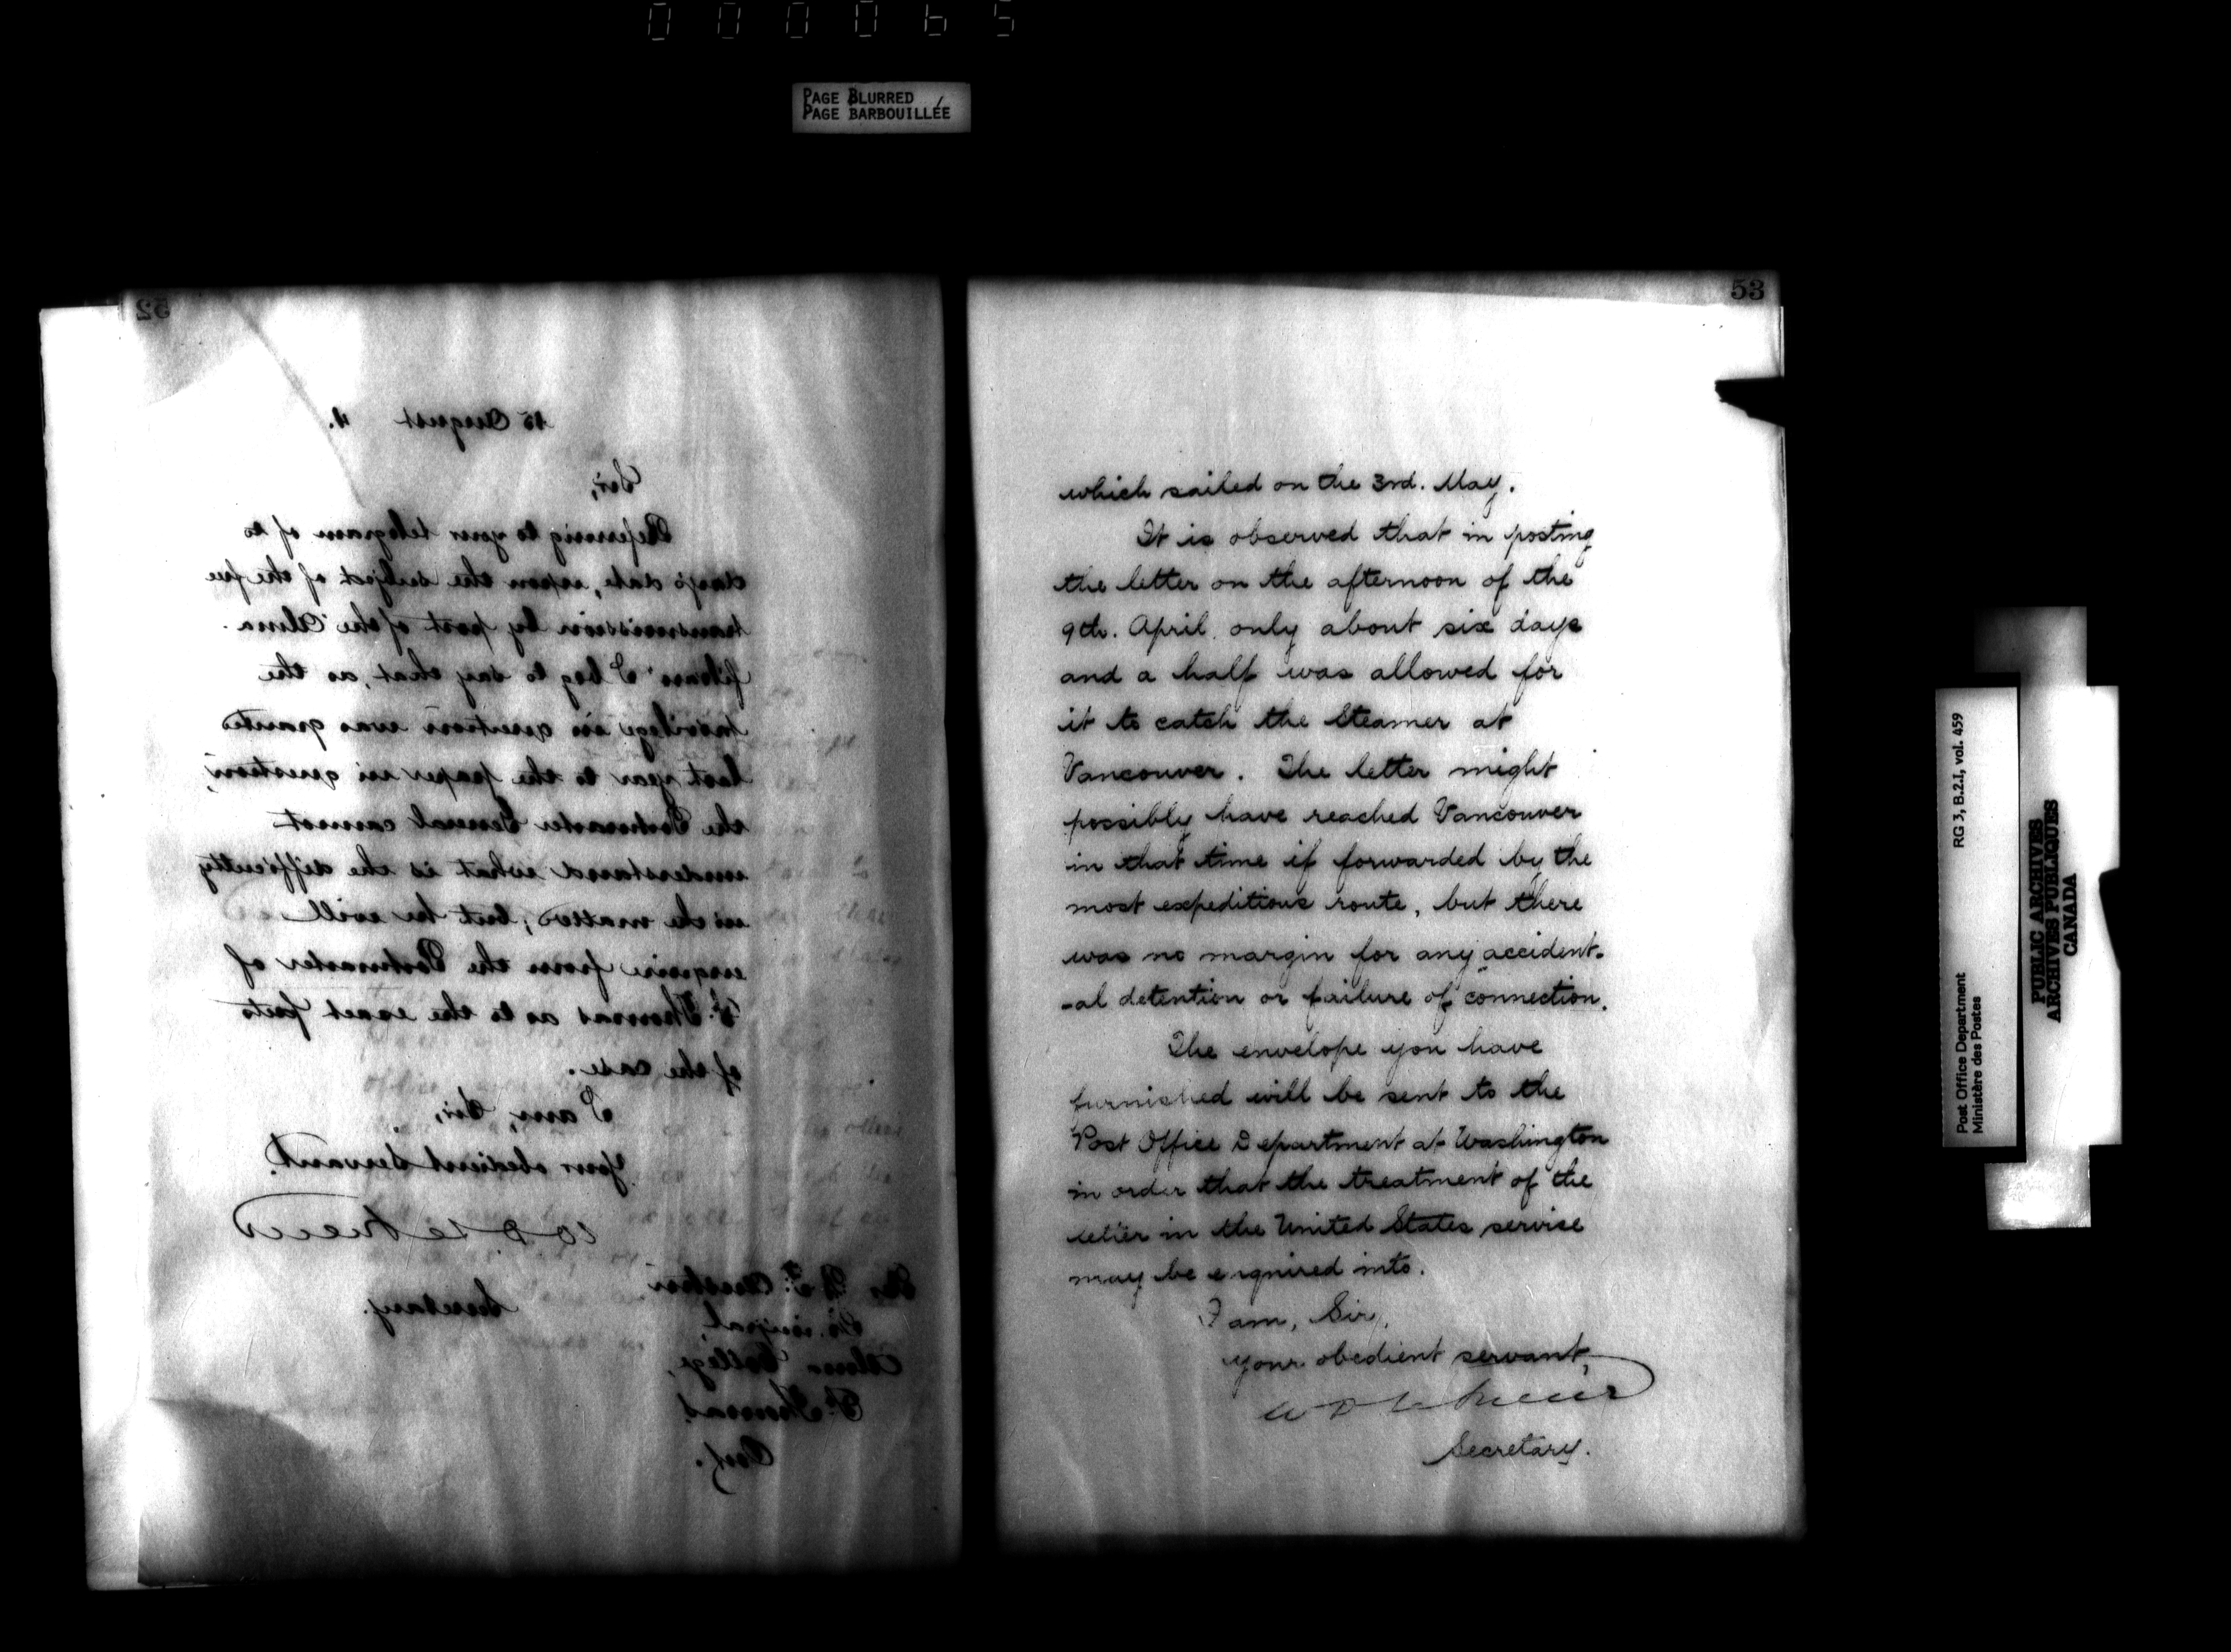 000065
PAGE BLURRED
PAGE BARBOUILLÉE
52
15 August 4.
Sir,
Referring to your telegram of to
day's date, upon the subject of the free
transmission by post of the "Alma
I beg to say that, as the
privilege in question was granted
last year to the paper in question,
the Postmaster General cannot
understand what is the difficulty
in the matter; but he will
enquire from the Postmaster of
St. Thomas as to the exact facts
of the case.
I am, Sir,
Your obedient Servant.
Secretary.
Alma College,
St. Thomas
Ont.
53
which sailed on the 3rd. May.
It is observed that in posting
the letter on the afternoon of the
9th. April, only about six days
and a half was allowed for
it to catch the Steamer at
Vancouver. The letter might
possibly have reached Vancouver
in that time if forwarded by the
most expeditious route, but there
was no margin for any accident-
-al detention or failure of connection.
The envelope you have
furnished will be sent to the
Post Office Department at Washington
in order that the treatment of the
letter in the United States service
may be enquired into.
I am, Sir,
your obedient servant,
Secretary.
Post Office Department
Ministère des Postes
RG 3, B.2.I, vol. 459
PUBLIC ARCHIVES
ARCHIVES PUBLIQUES
CANADA